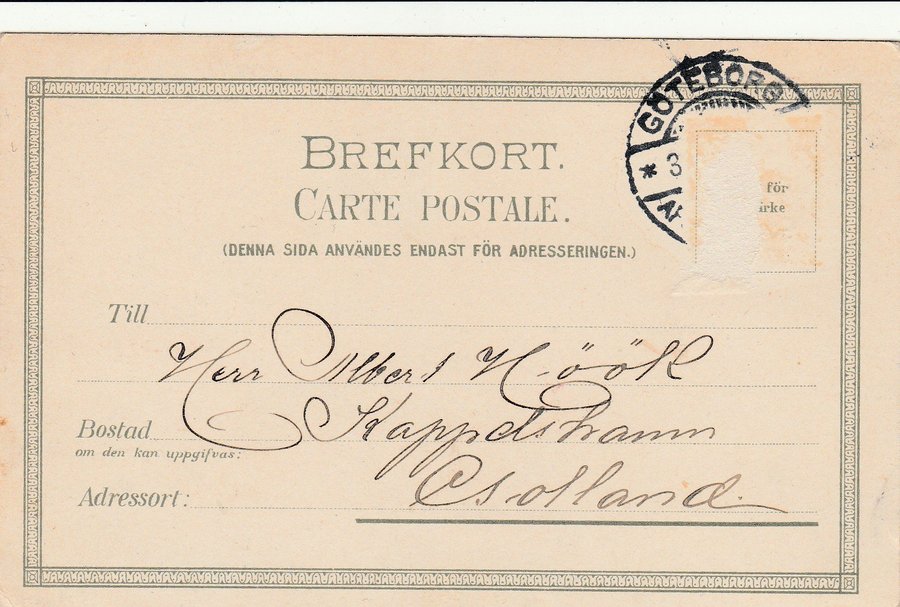 GÖTEBORG
* 3
BREFKORT.
CARTE POSTALE.
för
ärke
(DENNA SIDA ANVÄNDES ENDAST FÖR ADRESSERINGEN.)
Till
Herr Albert Höök
Bostad Kappelshamn
om den kan uppgifvas:
Adressort: Gotland